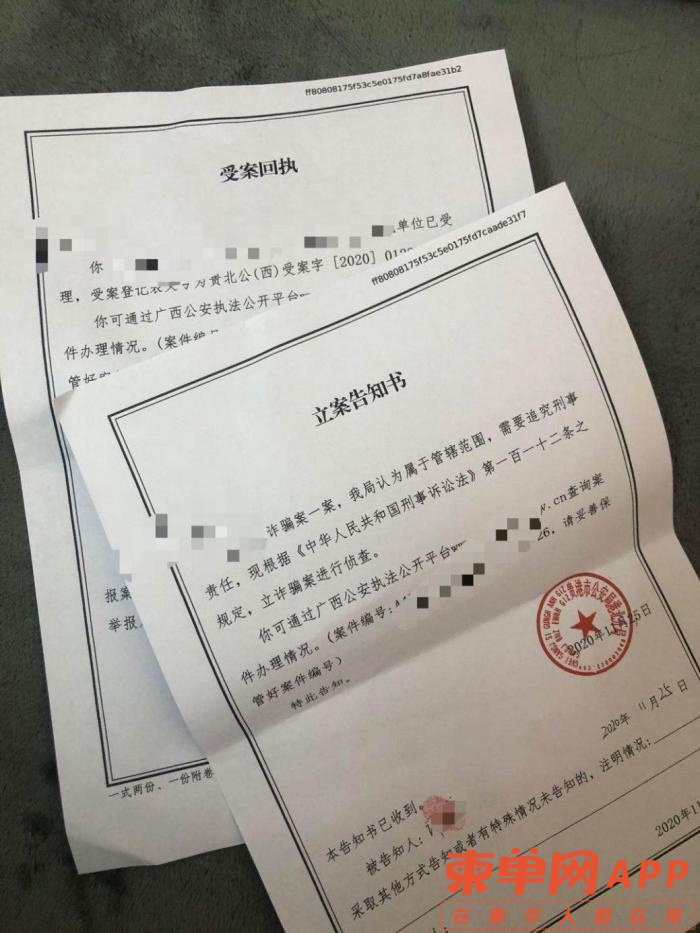 ff80808175f53c5e0175fd7a8fae31b2
受案回执
你
单位已受
理，受案登记表文号为贵北公(西)受案字[2020]
你可通过广西公安执法公开平台
件办理情况。(案件编
管好
报案
举报
一式两份、一份附卷
ff80808175f53c5e0175fd7caade31f7
立案告知书
诈骗案一案，我局认为属于管辖范围，需要追究刑事
责任，现根据《中华人民共和国刑事诉讼法》第一百一十二条之
规定，立诈骗案进行侦查。
你可通过广西公安执法公开平台w .cn查询案
件办理情况。(案件编号: 26，请妥善保
管好案件编号)
特此告知。
贵港市公安局港北分局
2020年11月25日
2020年11月25日
本告知书已收到。
被告知人：
采取其他方式告知或者有特殊情况未告知的，注明情况：
2020年11
柬单网APP
在柬华人都在用